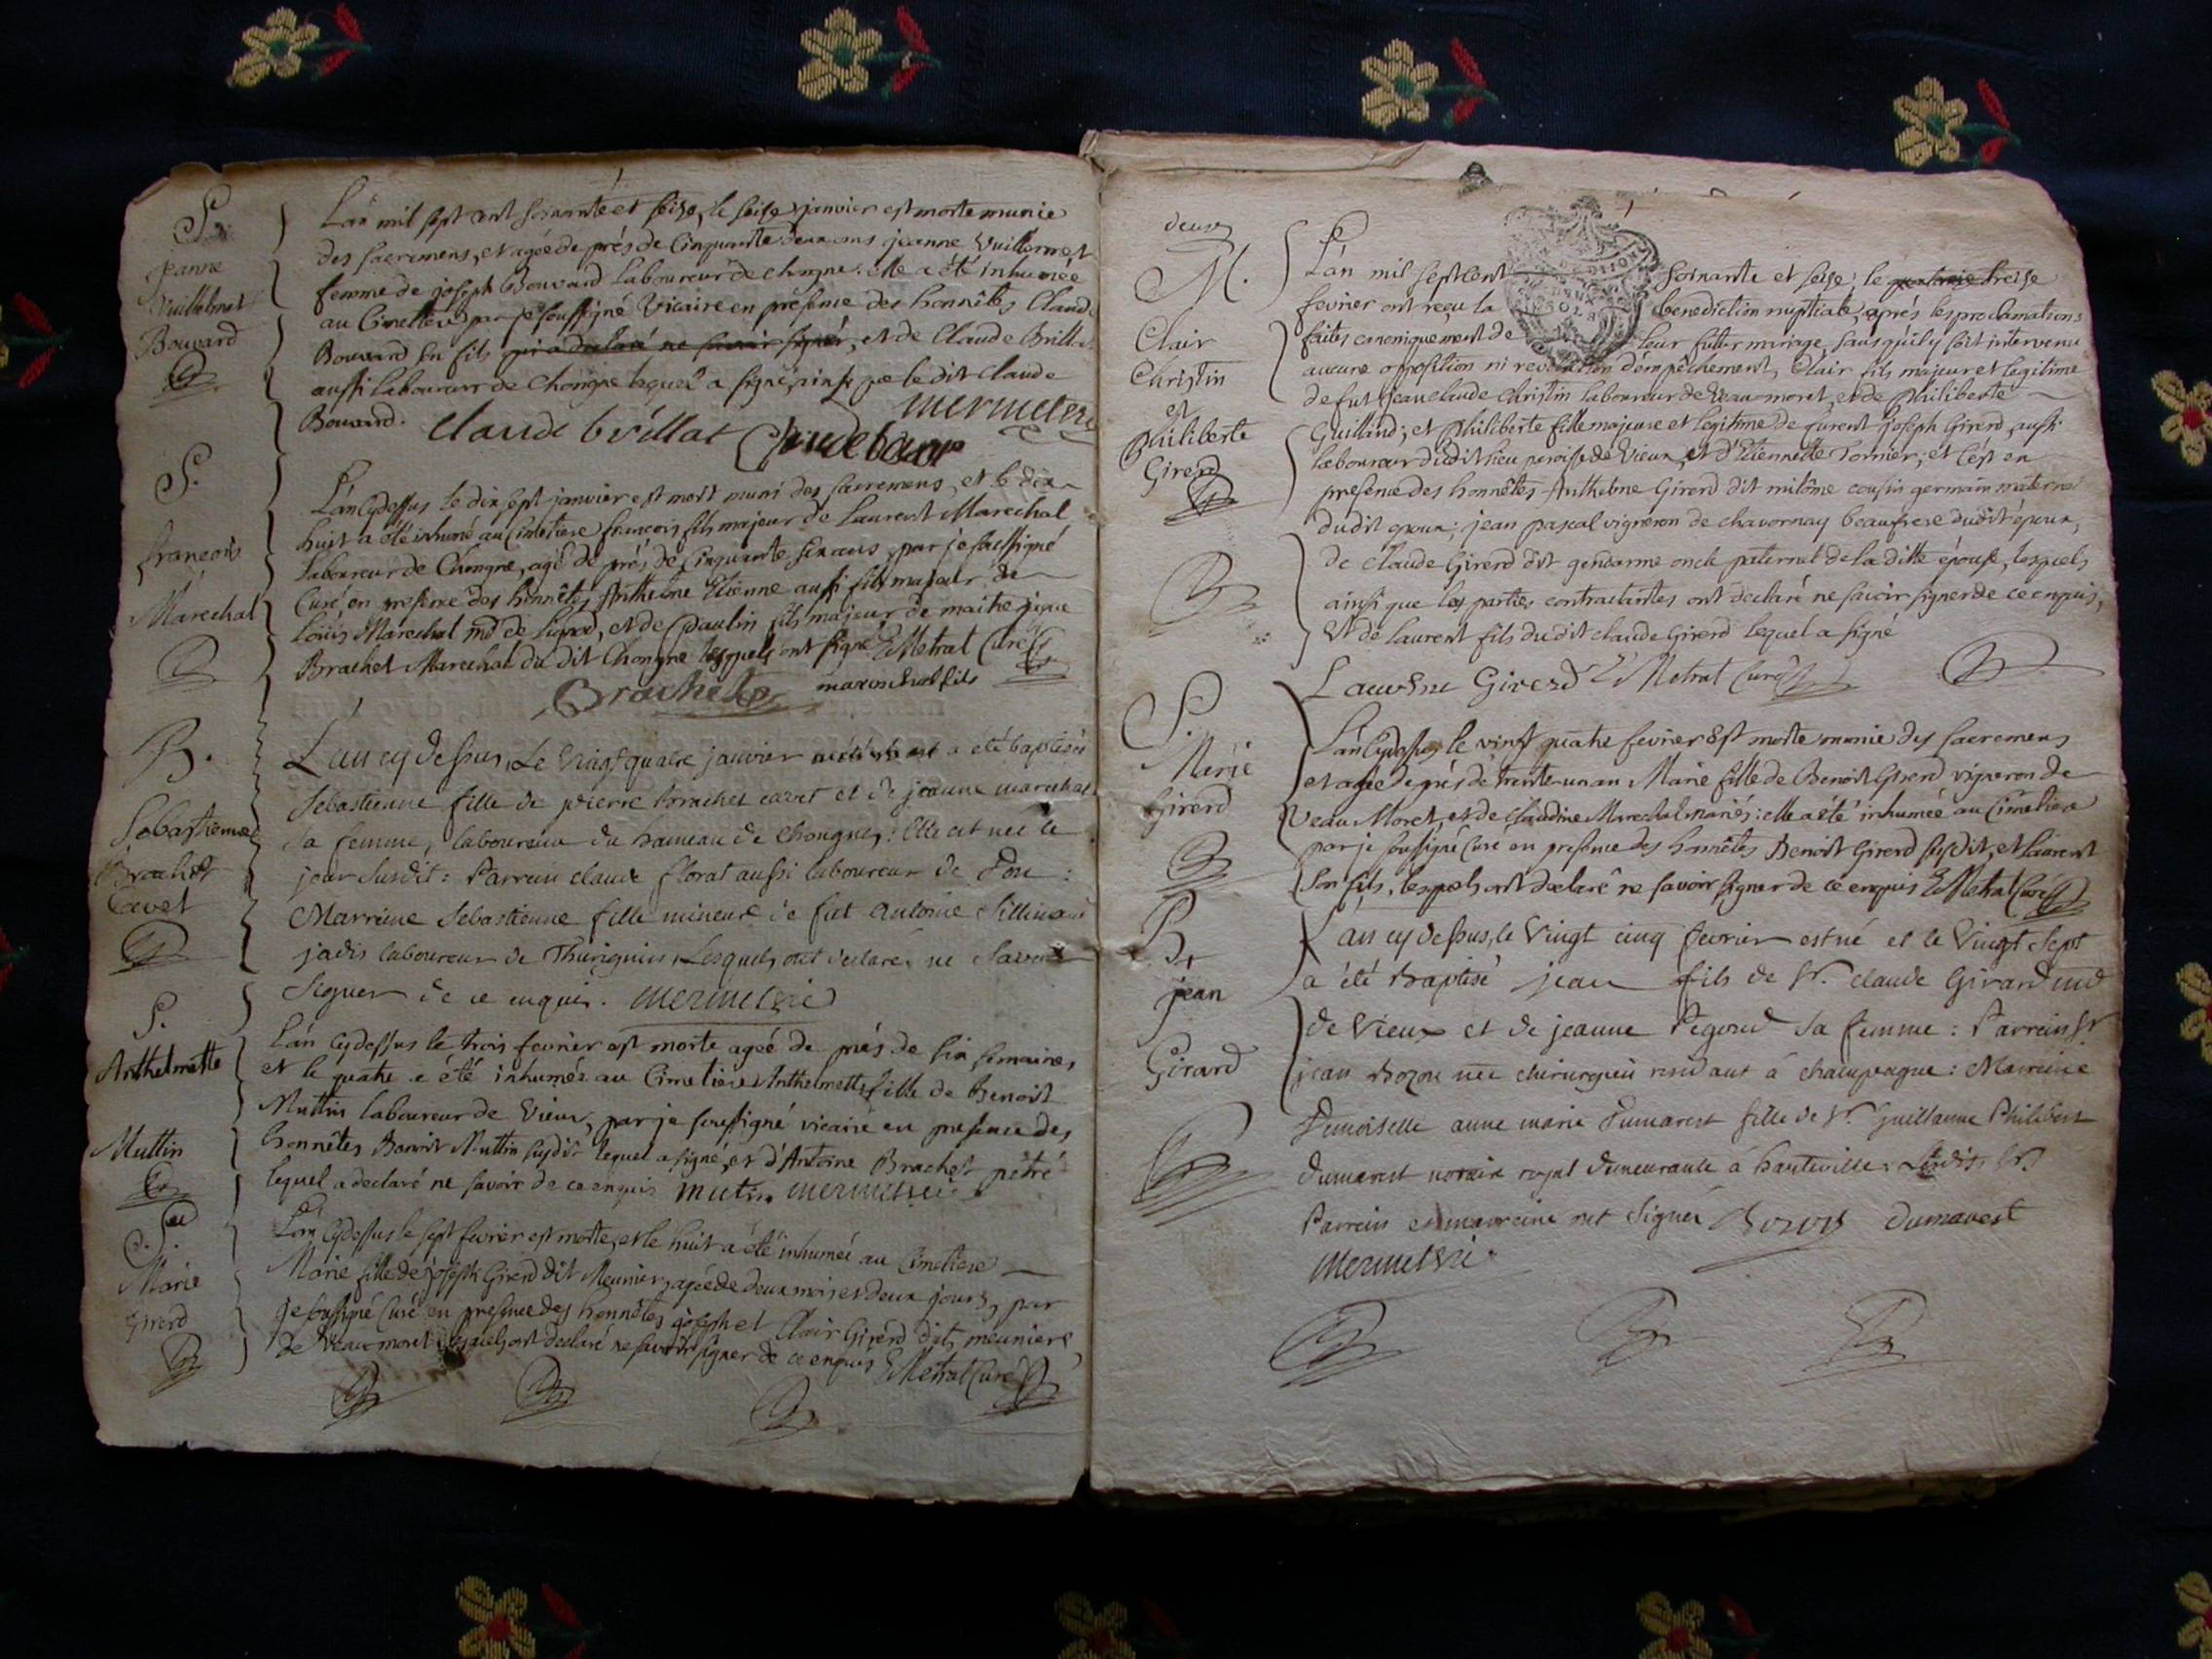 S.
Jeanne
Vuillelmet
Bouvard
L'an mil sept cent soixante et seise, le seise janvier est morte munie
des sacremens, et agée de prés de cinquante deux ans jeanne Vuillermet
femme de joseph Bouvard laboureur de chongne. elle a été inhumée
au Cimettiere par je soussigné Vicaire en présence des honnêtes Claude
Bouvard son fils qui a declaré ne savoir signer, et de Claude Brillat
aussi laboureur de Chongne lequel a signé, ainsi que le dit Claude
Bouvard. Claude brillat
S.
françois
Marechal
L'an cydessus le dix sept janvier est mort muni des sacremens, et le dix
huit a été inhumé au Cimetiere francois fils majeur de Laurent Marechal
laboureur de Chongne, agé de prés de Cinquante six ans, par je soussigné
Curé, en presence des honnêtes Anthelme Etienne aussi fils majeur de
Louis Marechal md de lignod, et de Paulin fils majeur de maitre
Brachet Marechal du dit Chongne lesquels ont signé Metrat Curé
Brachet marechal fils
B.
Sebastienne
Brachet
Cavet
L'an cy dessus, Le Vingt quatre janvier a eté baptisée
Sebastienne fille de pierre brachet cavet et de jeanne marechal
sa femme, laboureur du hameau de Chongnes: Elle est neé le
jour Susdit: Parrein claude florat aussi laboureur de Don:
Marreine Sebastienne fille mineure de fut Antoine Sillinan
jadis laboureur de Thurignin, Lesquels ont declaré ne Savoir
Signer de ce enquis. Mermetrie
S.
Anthelmette
Muttin
L'an cydessus le trois fevrier est morte agée de prés de six semaines
et le quatre a été inhumée au Cimetiere Anthelmette fille de Benoit
Muttin laboureur de Vieux, par je soussigné vicaire en presence des
honnêtes Benoit Muttin susdit lequel a signé, et d'Antoine Brachet pétré
lequel a declaré ne savoir de ce enquis mutin
S.
Marie
Girerd
L'an cydessus le sept fevrier est morte, et le huit a été inhumée au Cimetiere
Marie fille de joseph Girerd dit Meunier, agée de deux mois et deux jours, par
je soussigné Curé en presence des honnêtes joseph et Clair Girerd dits meuniers
de Veaux moret lesquels ont declaré ne savoir signer de ce enquis Metrat Curé
deux
M.
Clair
Christin
et
Philiberte
Girerd
L'an mil sept cent soixante et seise, le treise
fevrier ont reçu la benediction nuptiale, aprés les proclamations
faites canoniquement de leur futur mariage, sans qu'il y soit intervenu
aucune opposition ni revelation d'empêchement, Clair fils majeur et legitime
de fut jean claude Christin laboureur de Veaux moret, et de Philiberte
Guilland; et Philiberte fille majeure et legitime de furent joseph Girerd, aussi
laboureur dudit lieu paroisse de Vieux, et d'Etiennette Tornier; et c'est en
presence des honnêtes Anthelme Girerd dit milôme cousin germain maternel
dudit epoux; jean pascal vigneron de chavornay beaufrere dudit époux,
de claude Girerd dit gendarme oncle paternel de la ditte épouse, lesquels
ainsi que les parties contractantes ont declaré ne savoir signer de ce enquis,
et de laurent fils du dit claude Girerd lequel a signé
Laurent Girerd Metrat Curé
S.
Marie
Girerd
L'an cydessus le vingt quatre fevrier est morte munie des sacremens
et agée de prés de trente un an Marie fille de Benoit Girerd vigneron de
Veau Moret, et de Claudine Marechal mariés: elle a été inhumée au Cimetiere
par je soussigné Curé en presence des honnêtes Benoit Girerd susdit, et laurent
son fils, lesquels ont declaré ne savoir signer de ce enquis Metrat Curé
B.
jean
Girard
L'an cy dessus, le Vingt cinq fevrier est né et le Vingt sept
a été Baptisé jean fils de Sr. claude Girard md
de Vieux et de jeanne Pegoud sa femme: Parrein Sr.
jean Bozon chirurgien residant á champagne: Marreine
Demoiselle anne marie Dumarest fille de Sr. Guillaume Philibert
dumarest notaire royal demeurante á hauteville; Lesdits Sr.
Parrein et marreine ont Signés Bozon Dumarest
Mermetrie